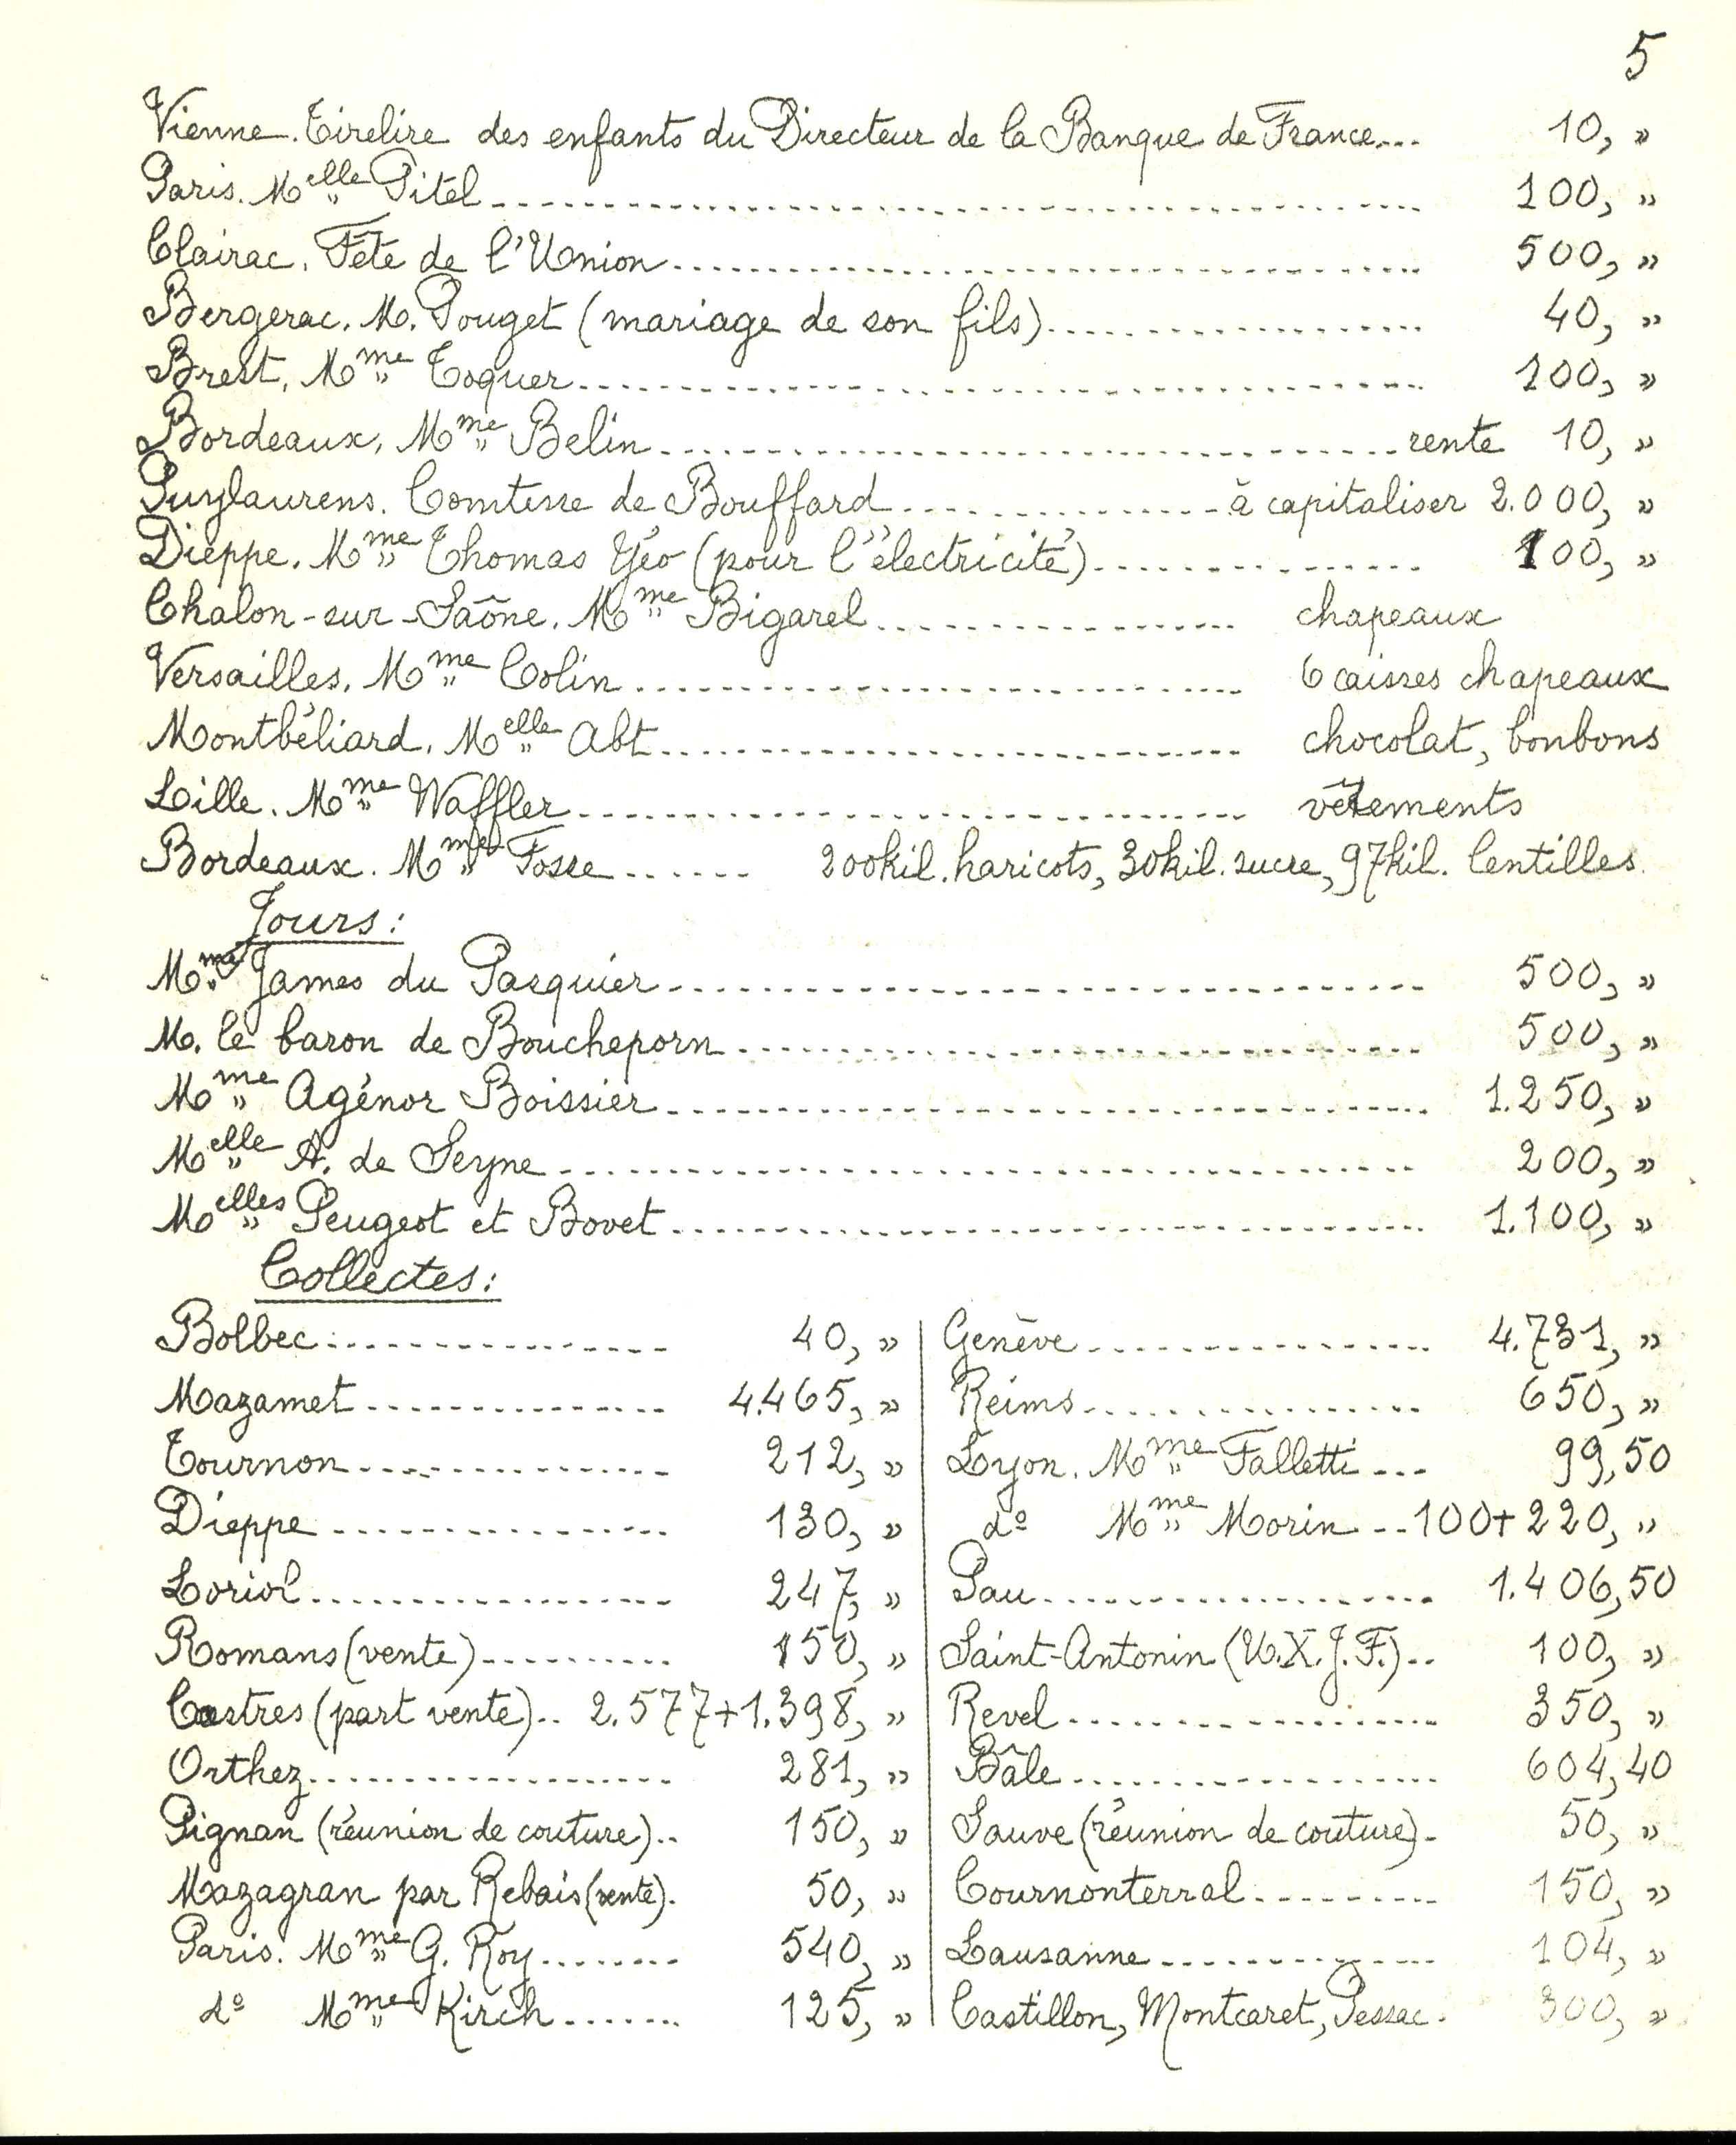 5
Vienne. Tirelire des enfants du Directeur de la Banque de France... 10, "
Paris. Melle Pitel ... 100, "
Clairac. Fête de l'Union ... 500, "
Bergerac. M. Pouget (mariage de son fils) ... 40, "
Brest, Mme Toquer ... 100, "
Bordeaux, Mme Belin ... rente 10, "
Puylaurens. Comtesse de Bouffard ... à capitaliser 2.000, "
Dieppe. Mme Thomas Géo (pour l'électricité) ... 100, "
Chalon-sur-Saône. Mme Bigarel ... chapeaux
Versailles. Mme Colin ... 6 caisses chapeaux
Montbéliard. Melle Abt ... chocolat, bonbons
Lille. Mme Waffler ... vêtements
Bordeaux. Mme Fosse ... 200kil. haricots, 30kil. sucre, 97kil. lentilles.
Jours :
Mme James du Pasquier ... 500, "
M. le baron de Boucheporn ... 500, "
Mme Agénor Boissier ... 1.250, "
Melle A. de Seyne ... 200, "
Melles Peugeot et Bovet ... 1.100, "
Collectes :
Bolbec ... 40, "
Mazamet ... 4.465, "
Tournon ... 212, "
Dieppe ... 130, "
Loriol ... 247, "
Romans (vente) ... 150, "
Castres (part vente) .. 2.577+1.398, "
Orthez ... 281, "
Pignan (réunion de couture) .. 150, "
Mazagran par Rebais (vente). 50, "
Paris. Mme G. Roy ... 540, "
do Mme Kirch ... 125, "
Genève ... 4.731, "
Reims ... 650, "
Lyon. Mme Falletti ... 99,50
do Mme Morin .. 100+220, "
Pau ... 1.406,50
Saint-Antonin (U.X.J.F.) .. 100, "
Revel ... 350, "
Bâle ... 604,40
Sauve (réunion de couture). 50, "
Cournonterral ... 150, "
Lausanne ... 104, "
Castillon, Montcaret, Pessac. 300, "